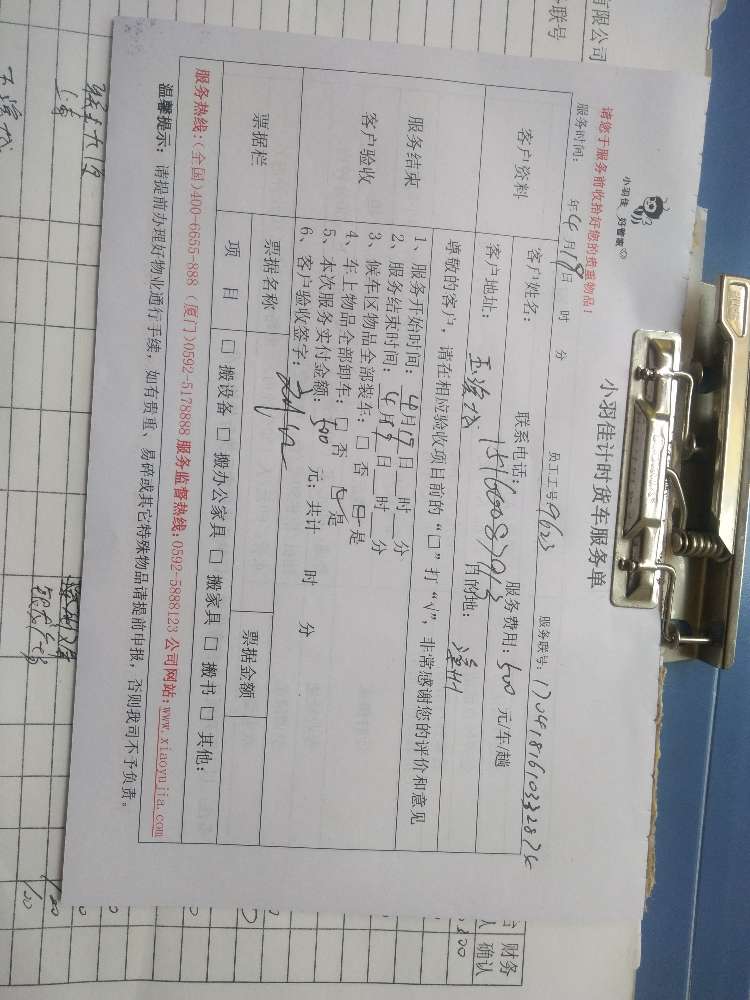 小羽佳 好管家
小羽佳计时货车服务单
请您于服务前收拾好您的贵重物品！
服务时间： 年4月19日 时 分 员工工号9623 服务联号：
客户资料
客户姓名： 联系电话： 服务费用：500 元/车/趟
客户地址： 目的地：漳州
服务结束、客户验收
尊敬的客户，请在相应验收项目前的“□”打“√”，非常感谢您的评价和意见
1、服务开始时间：4月19日 时 分
2、服务结束时间：4月19日 时 分
3、候车区物品全部装车：□ 否 □ 是
4、车上物品全部卸车：□ 否 □ 是
5、本次服务实付金额：500 元；共计 时 分
6、客户验收签字：
票据栏
票据名称 票据金额
项 目 □ 搬设备 □ 搬办公家具 □ 搬家具 □ 搬书 □ 其他：
服务热线：(全国)400-6655-888 (厦门)0592-5178888 服务监督热线：0592-5888123 公司网站：www.xiaoyujia.com
温馨提示： 请提前办理好物业通行手续，如有贵重、易碎或其它特殊物品请提前申报，否则我司不予负责。
有限公司
联号
财务
确认